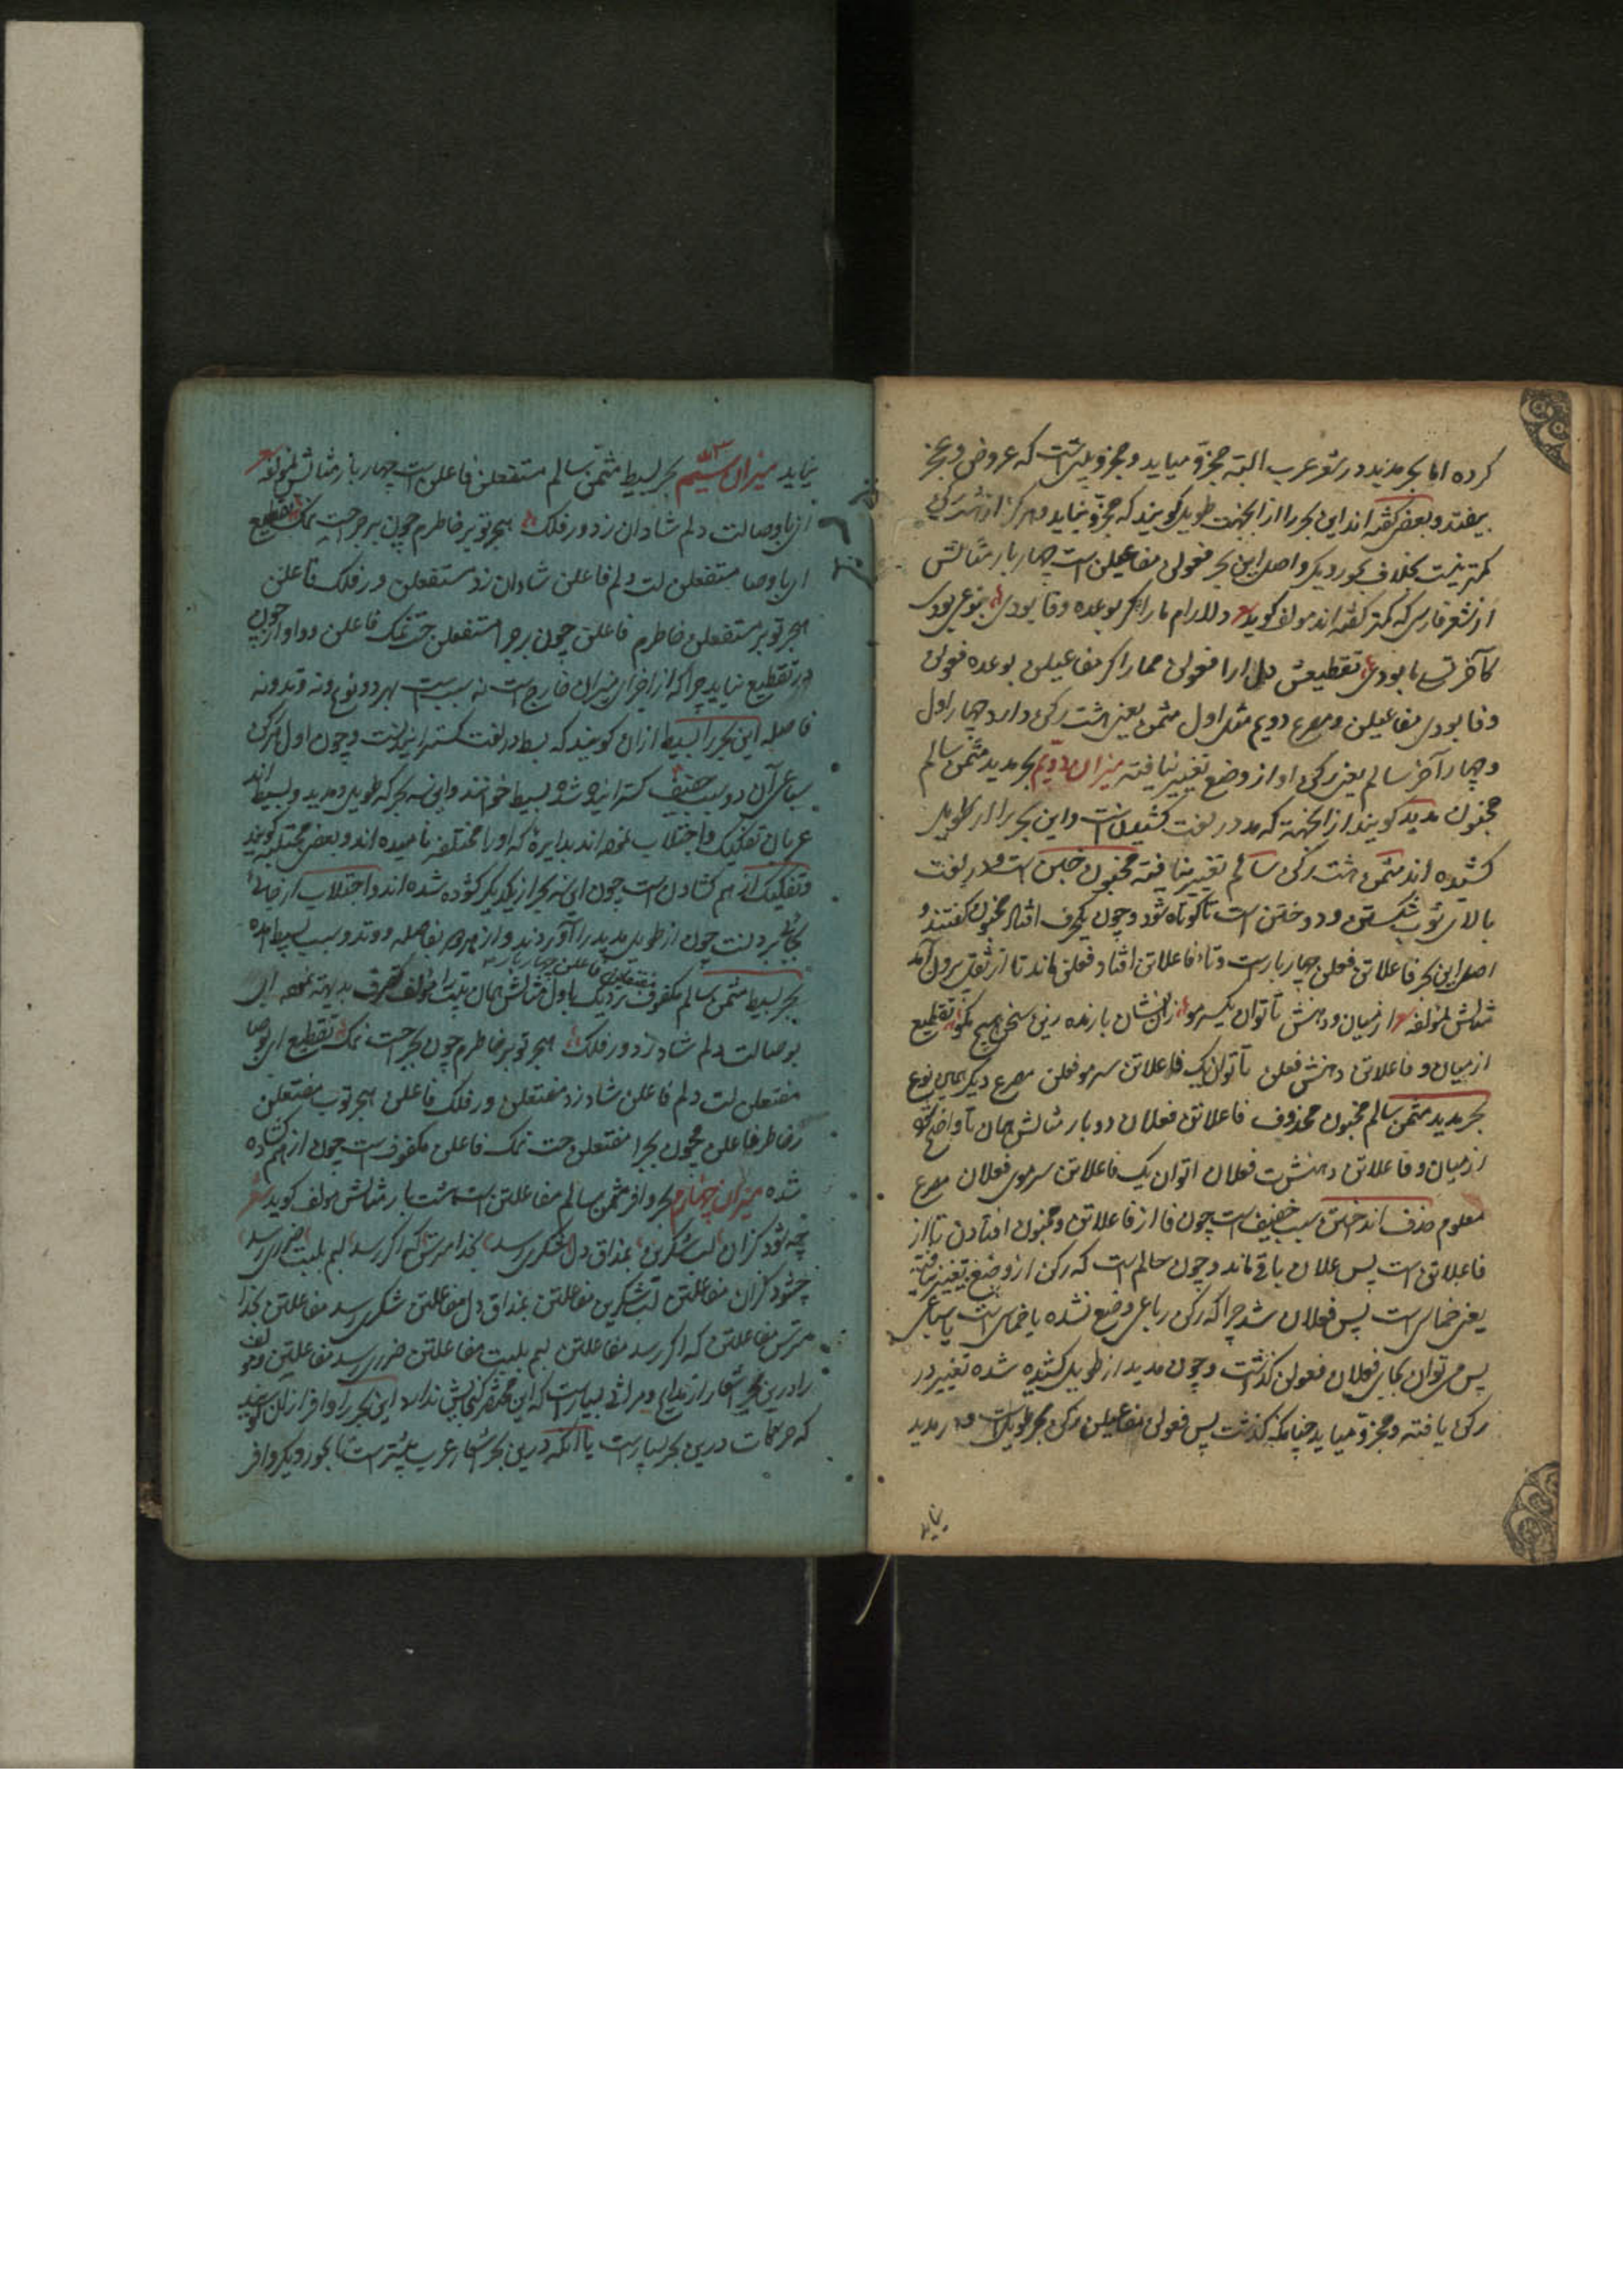 کرده اما بحر مدید در شعر عرب البته مجزو میاید و مجزو بیتی است که عروض و عجز
بیفتد و بعضی گفته اند این بحر را از انجهت طویل کویند که مجزو نیاید و هرکز از هشت رکن
کمتر نیست بخلاف بحور دیکر و اصل این بحر فعولن مفاعیلن است چهار بار مثالش
از شعر فارسی که کمتر گفته اند مولف کوید دلارام ما را کر بوعده وفا بودی بنوعی بودی
کآخر تسبا بودی تقطیعش دلارا فعولن مما را کر مفاعیلن بوعده فعولن
وفا بودی مفاعیلن و مصرع دویم مثل اول مثمن یعنی هشت رکن دارد چهار اول
و چهار آخر سالم یعنی رکن او از وضع تغییر نیافته میزان دویم بحر مدید مثمن سالم
مخبون مدید کویند از انجهة که مد در لغت کشیدن است و این بحر را از طویل
کشیده اند مثمن هشت رکن سالم تغییر نیافته مخبون خبن است و در لغت
بالای ثوب شکستن و دوختن است تا کوتاه شود و چون یکحرف افتاد مخبون گفتند و
اصل این بحر فاعلاتن فعلن چهار بار است و تاء فاعلاتن افتاد فعلن ماند تا از ثقل بیرون آمد
مثالش لمؤلفه از میان و دهنش تا توان یکسر مو زان نشان باز نده زین سخن هیچ مکو تقطیع
از میان و فاعلاتن دهنش فعلن تا توان یک فاعلاتن سر مو فعلن مصرع دیکر همین نوع
بحر مدید مثمن سالم مخبون محذوف فاعلاتن فعلان دو بار مثالش همان تا واضح شود
از میان و فاعلاتن دهنشت فعلان اتوان یک فاعلاتن سر موی فعلان مصرع
معلوم حذف انداختن سبب خفیف است چون فا از فاعلاتن و مخبون افتادن تا از
فاعلاتن است پس علان باقی ماند و چون سالم است که رکن از وضع تغییر نیافته
یعنی خماسی است پس فعلان شد چرا که رکن رباعی وضع نشده یا خماسی است یا سباعی
پس می توان بجای فعلان فعولن گذاشت و چون مدید از طویل کشیده شده تغییر در
رکن یافته و مجزو میاید چنانکه گذشت پس فعولن مفاعیلن رکن بحر طویل است و در مدید
نیاید
نیاید میزان سیم بحر بسیط مثمن سالم مستفعلن فاعلن است چهار بار مثالش لمؤلفه
از با وصالت دلم شادان زد ور فلک هجر تو بر خاطرم چون بر جراحت نمک تقطیع
از با وصا مستفعلن لت دلم فاعلن شادان زد مستفعلن ور فلک فاعلن
هجر تو بر مستفعلن خاطرم فاعلن چون بر جرا مستفعلن حت نمک فاعلن و واو از چون
در تقطیع نیاید چرا که از اجزای میزان خارج است نه سبب است بهر دو نوع و نه وتد و نه
فاصله این بحر را بسیط ازان کویند که بسط در لغت کسترانیدنست و چون اول هر رکن
سباعی آن دو سبب خفیف کسترانیده شده بسیط خوانند و این سه بحر که طویل و مدید و بسیط اند
عربان تفکیک و اجتلاب نموده اند بدایره که او را مختلفه نامیده اند و بعضی مجتلبه کویند
و تفکیک از هم کشادن است چون این سه بحر از یکدیگر کشوده شده اند و اجتلاب از جای
بجائی بردنست چون از طویل مدید را آوردند و از مدید بفاصله و وتد و سبب بسیط آمده
بحر بسیط مثمن سالم مکفوف مفتعلن فاعلن چهار بار نزدیک باول مثالش همان بیت مولف تصرف بدیهة نموده
بوصالت دلم شاد زد ور فلک هجر تو بر خاطرم چون بجراحت نمک تقطیع از بوصا
مفتعلن لت دلم فاعلن شاد زد مفتعلن ور فلک فاعلن هجر تو ب مفتعلن
رخاطر فاعلن مچون بجرا مفتعلن حت نمک فاعلن مکفوف است چون از هم کشاده
شده میزان چهارم بحر وافر مثمن سالم مفاعلتن است هشت بار مثالش مولف کوید شعر
چه شود کزان لب شکرین بمذاق دل شکری رسد بخدا مترس که اکر رسد لبم بلبت ضرری رسد
چشود کزان مفاعلتن لب شکرین مفاعلتن بمذاق دل مفاعلتن شکری رسد مفاعلتن بخدا
مترس مفاعلتن که اکر رسد مفاعلتن لبم بلبت مفاعلتن ضرری رسد مفاعلتن و مولف
را درین بحر اشعار از مدایح و مراثی بسیار است که این مختصر کنجایش ندارد این بحر را وافر ازان کویند
که حرکات درین بحر بسیار است یا آنکه درین بحر اشعار عرب بیشتر است تا بحور دیکر و وافر